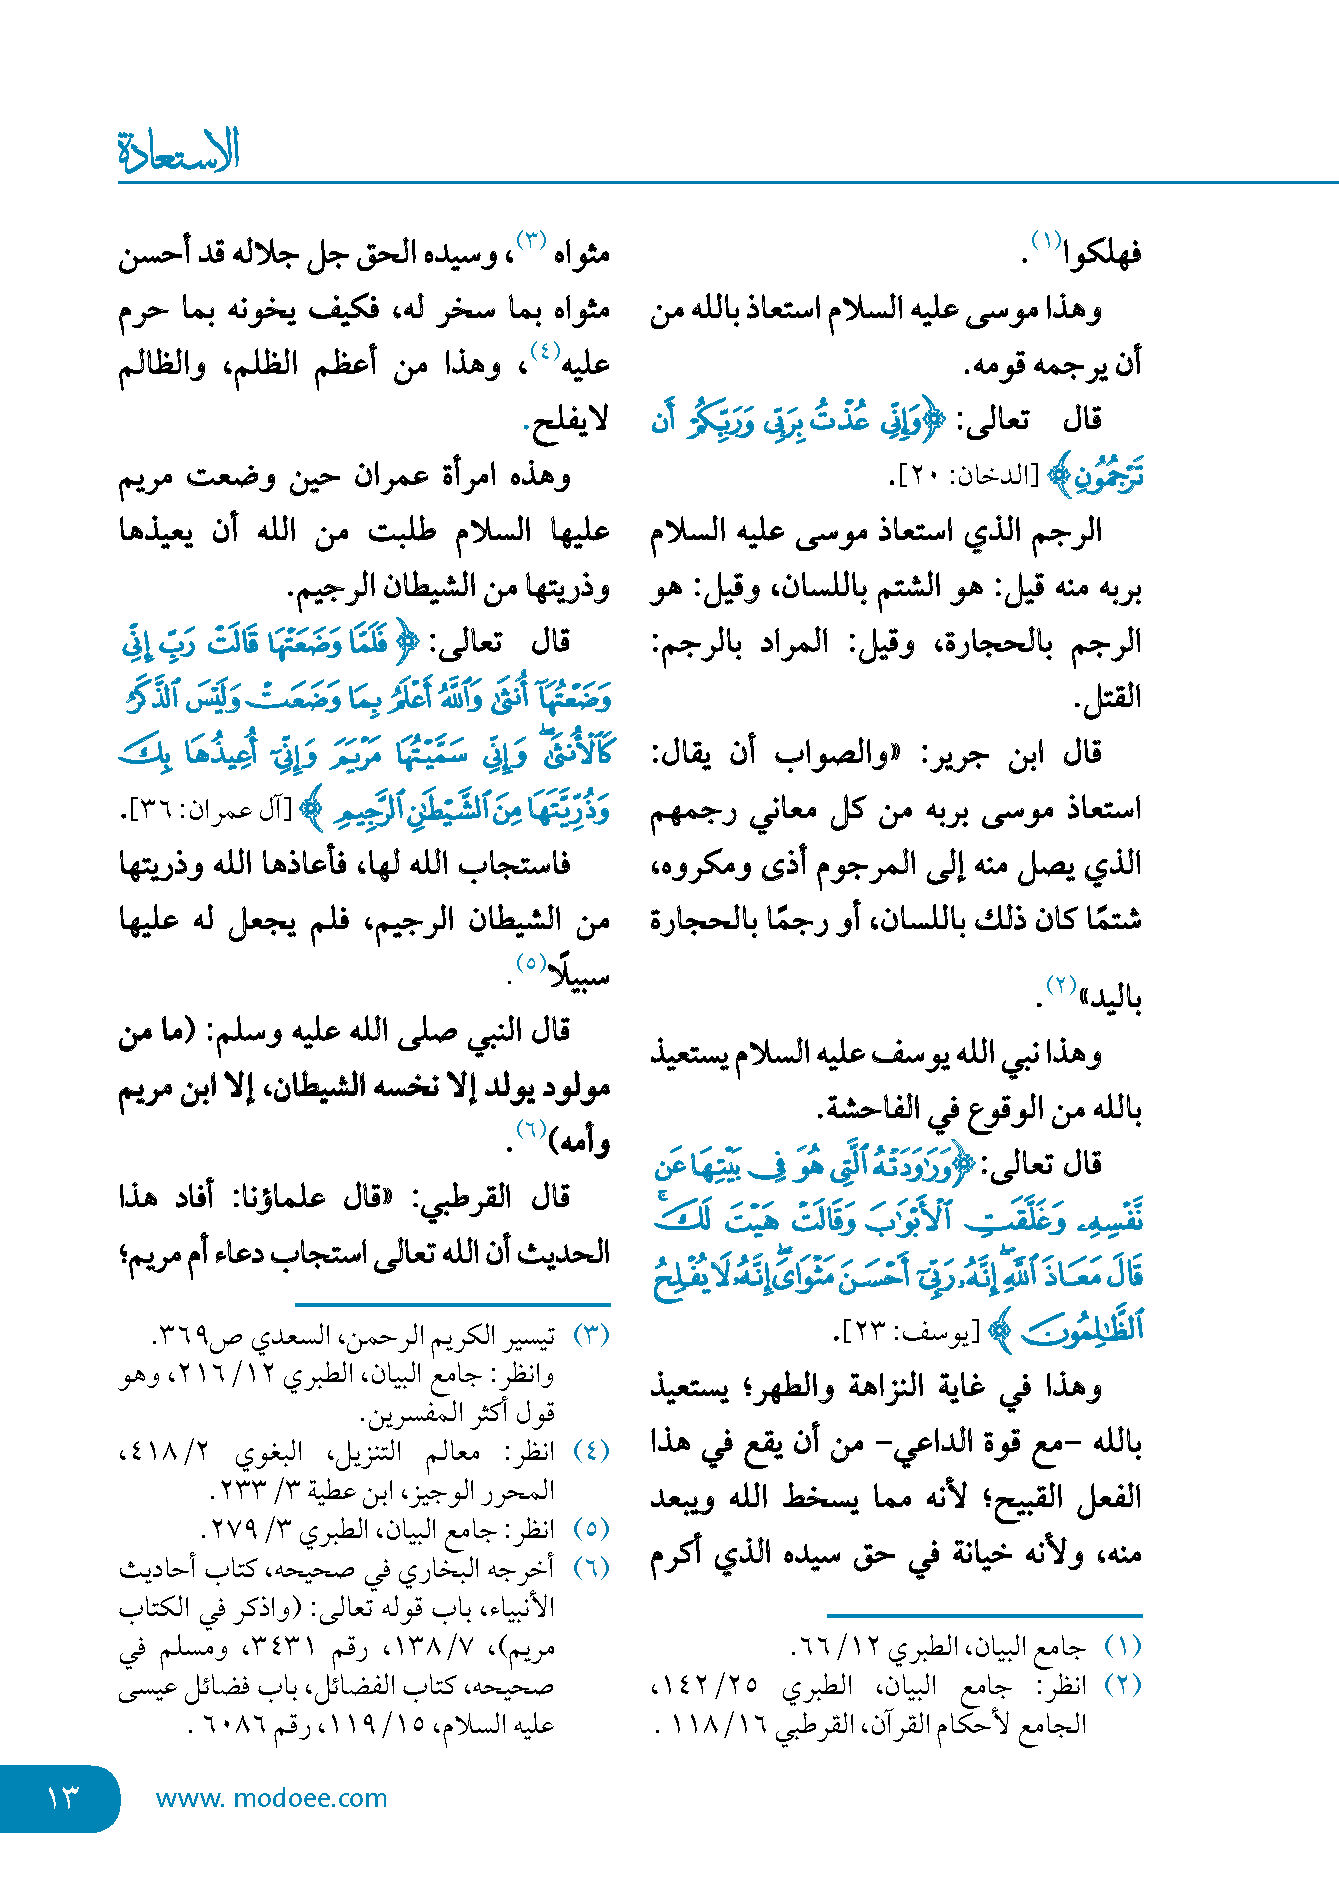 الاستعاذة
فهلكوا(١).
وهذا موسى عليه السلام استعاذ بالله من
أن يرجمه قومه.
قال تعالى: ﴿وَإِنِّي عُذْتُ بِرَبِّي وَرَبِّكُمْ أَن
تَرْجُمُونِ﴾ [الدخان: ٢٠].
الرجم الذي استعاذ موسى عليه السلام
بربه منه قيل: هو الشتم باللسان، وقيل: هو
الرجم بالحجارة، وقيل: المراد بالرجم:
القتل.
قال ابن جرير: «والصواب أن يقال:
استعاذ موسى بربه من كل معاني رجمهم
الذي يصل منه إلى المرجوم أذى ومكروه،
شتمًا كان ذلك باللسان، أو رجمًا بالحجارة
باليد»(٢).
وهذا نبي الله يوسف عليه السلام يستعيذ
بالله من الوقوع في الفاحشة.
قال تعالى: ﴿وَرَٰوَدَتْهُ ٱلَّتِي هُوَ فِي بَيْتِهَا عَن
نَّفْسِهِۦ وَغَلَّقَتِ ٱلْأَبْوَٰبَ وَقَالَتْ هَيْتَ لَكَ ۚ
قَالَ مَعَاذَ ٱللَّهِ ۖ إِنَّهُۥ رَبِّيٓ أَحْسَنَ مَثْوَايَ ۖ إِنَّهُۥ لَا يُفْلِحُ
ٱلظَّٰلِمُونَ ﴾ [يوسف: ٢٣].
وهذا في غاية النزاهة والطهر؛ يستعيذ
بالله -مع قوة الداعي- من أن يقع في هذا
الفعل القبيح؛ لأنه مما يسخط الله ويبعد
منه، ولأنه خيانة في حق سيده الذي أكرم
(١) جامع البيان، الطبري ١٢/ ٦٦.
(٢) انظر: جامع البيان، الطبري ٢٥/ ١٤٢،
الجامع لأحكام القرآن، القرطبي ١٦/ ١١٨ .
مثواه (٣)، وسيده الحق جل جلاله قد أحسن
مثواه بما سخر له، فكيف يخونه بما حرم
عليه(٤)، وهذا من أعظم الظلم، والظالم
لايفلح.
وهذه امرأة عمران حين وضعت مريم
عليها السلام طلبت من الله أن يعيذها
وذريتها من الشيطان الرجيم.
قال تعالى: ﴿ فَلَمَّا وَضَعَتْهَا قَالَتْ رَبِّ إِنِّي
وَضَعْتُهَآ أُنثَىٰ وَٱللَّهُ أَعْلَمُ بِمَا وَضَعَتْ وَلَيْسَ ٱلذَّكَرُ
كَٱلْأُنثَىٰ ۖ وَإِنِّي سَمَّيْتُهَا مَرْيَمَ وَإِنِّيٓ أُعِيذُهَا بِكَ
وَذُرِّيَّتَهَا مِنَ ٱلشَّيْطَٰنِ ٱلرَّجِيمِ ﴾ [آل عمران: ٣٦].
فاستجاب الله لها، فأعاذها الله وذريتها
من الشيطان الرجيم، فلم يجعل له عليها
سبيلًا(٥).
قال النبي صلى الله عليه وسلم: (ما من
مولود يولد إلا نخسه الشيطان، إلا ابن مريم
وأمه)(٦).
قال القرطبي: «قال علماؤنا: أفاد هذا
الحديث أن الله تعالى استجاب دعاء أم مريم؛
(٣) تيسير الكريم الرحمن، السعدي ص٣٦٩.
وانظر: جامع البيان، الطبري ١٢/ ٢١٦، وهو
قول أكثر المفسرين.
(٤) انظر: معالم التنزيل، البغوي ٢/ ٤١٨،
المحرر الوجيز، ابن عطية ٣/ ٢٣٣.
(٥) انظر: جامع البيان، الطبري ٣/ ٢٧٩.
(٦) أخرجه البخاري في صحيحه، كتاب أحاديث
الأنبياء، باب قوله تعالى: (واذكر في الكتاب
مريم)، ٧/ ١٣٨، رقم ٣٤٣١، ومسلم في
صحيحه، كتاب الفضائل، باب فضائل عيسى
عليه السلام، ١٥/ ١١٩، رقم ٦٠٨٦ .
www. modoee.com
١٣